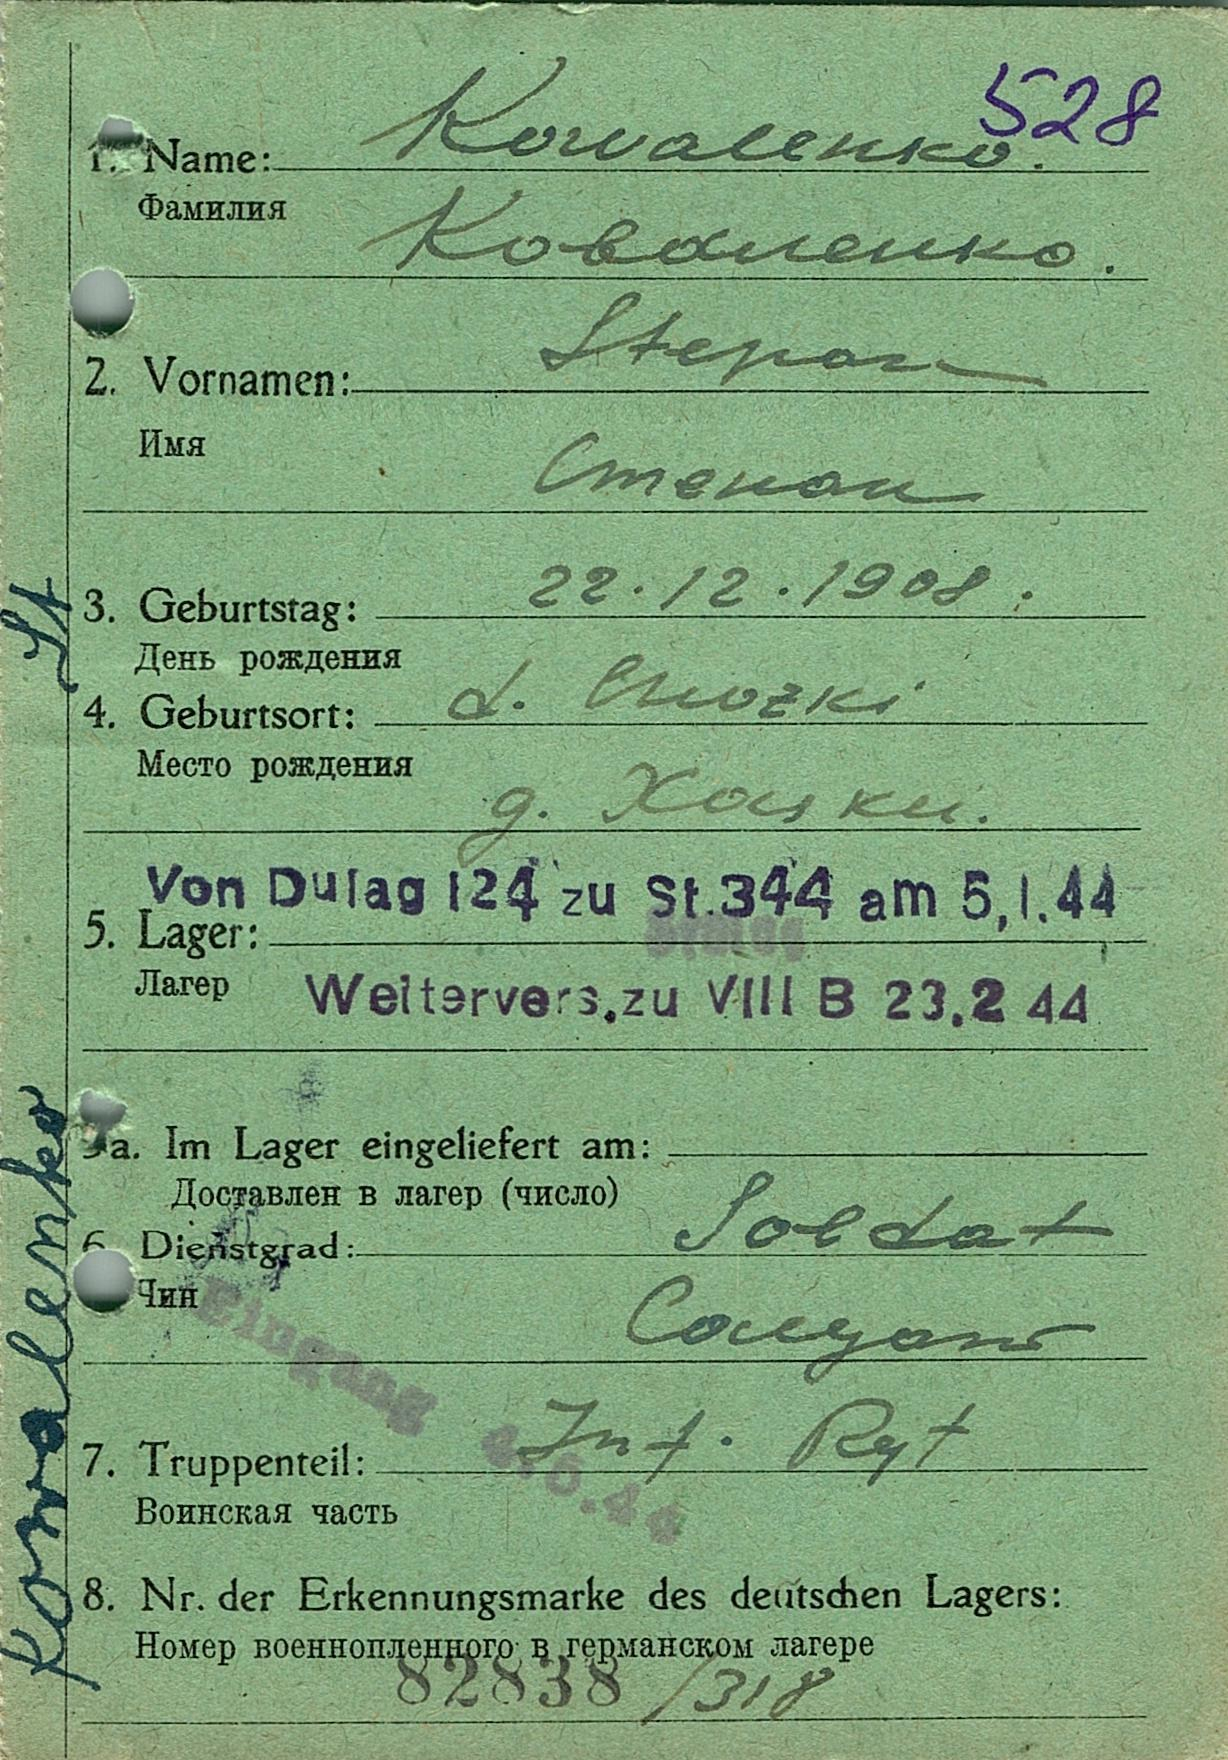 528
1. Name: Kowalenko.
Фамилия Коваленко.
2. Vornamen: Stepan
Имя Степан
3. Geburtstag: 22.12.1908.
День рождения
4. Geburtsort: d.
Место рождения
д.
Von Dulag 124 zu St.344 am 5,1.44
5. Lager:
Лагер
Weitervers.zu VIII B 23.2 44
5a. Im Lager eingeliefert am:
Доставлен в лагер (число)
6. Dienstgrad: Soldat
Чин Солдат
Eingang
7. Truppenteil: Inf. Rgt
Воинская часть
8. Nr. der Erkennungsmarke des deutschen Lagers:
Номер военнопленного в германском лагере
82838 /318
Kowalenko St